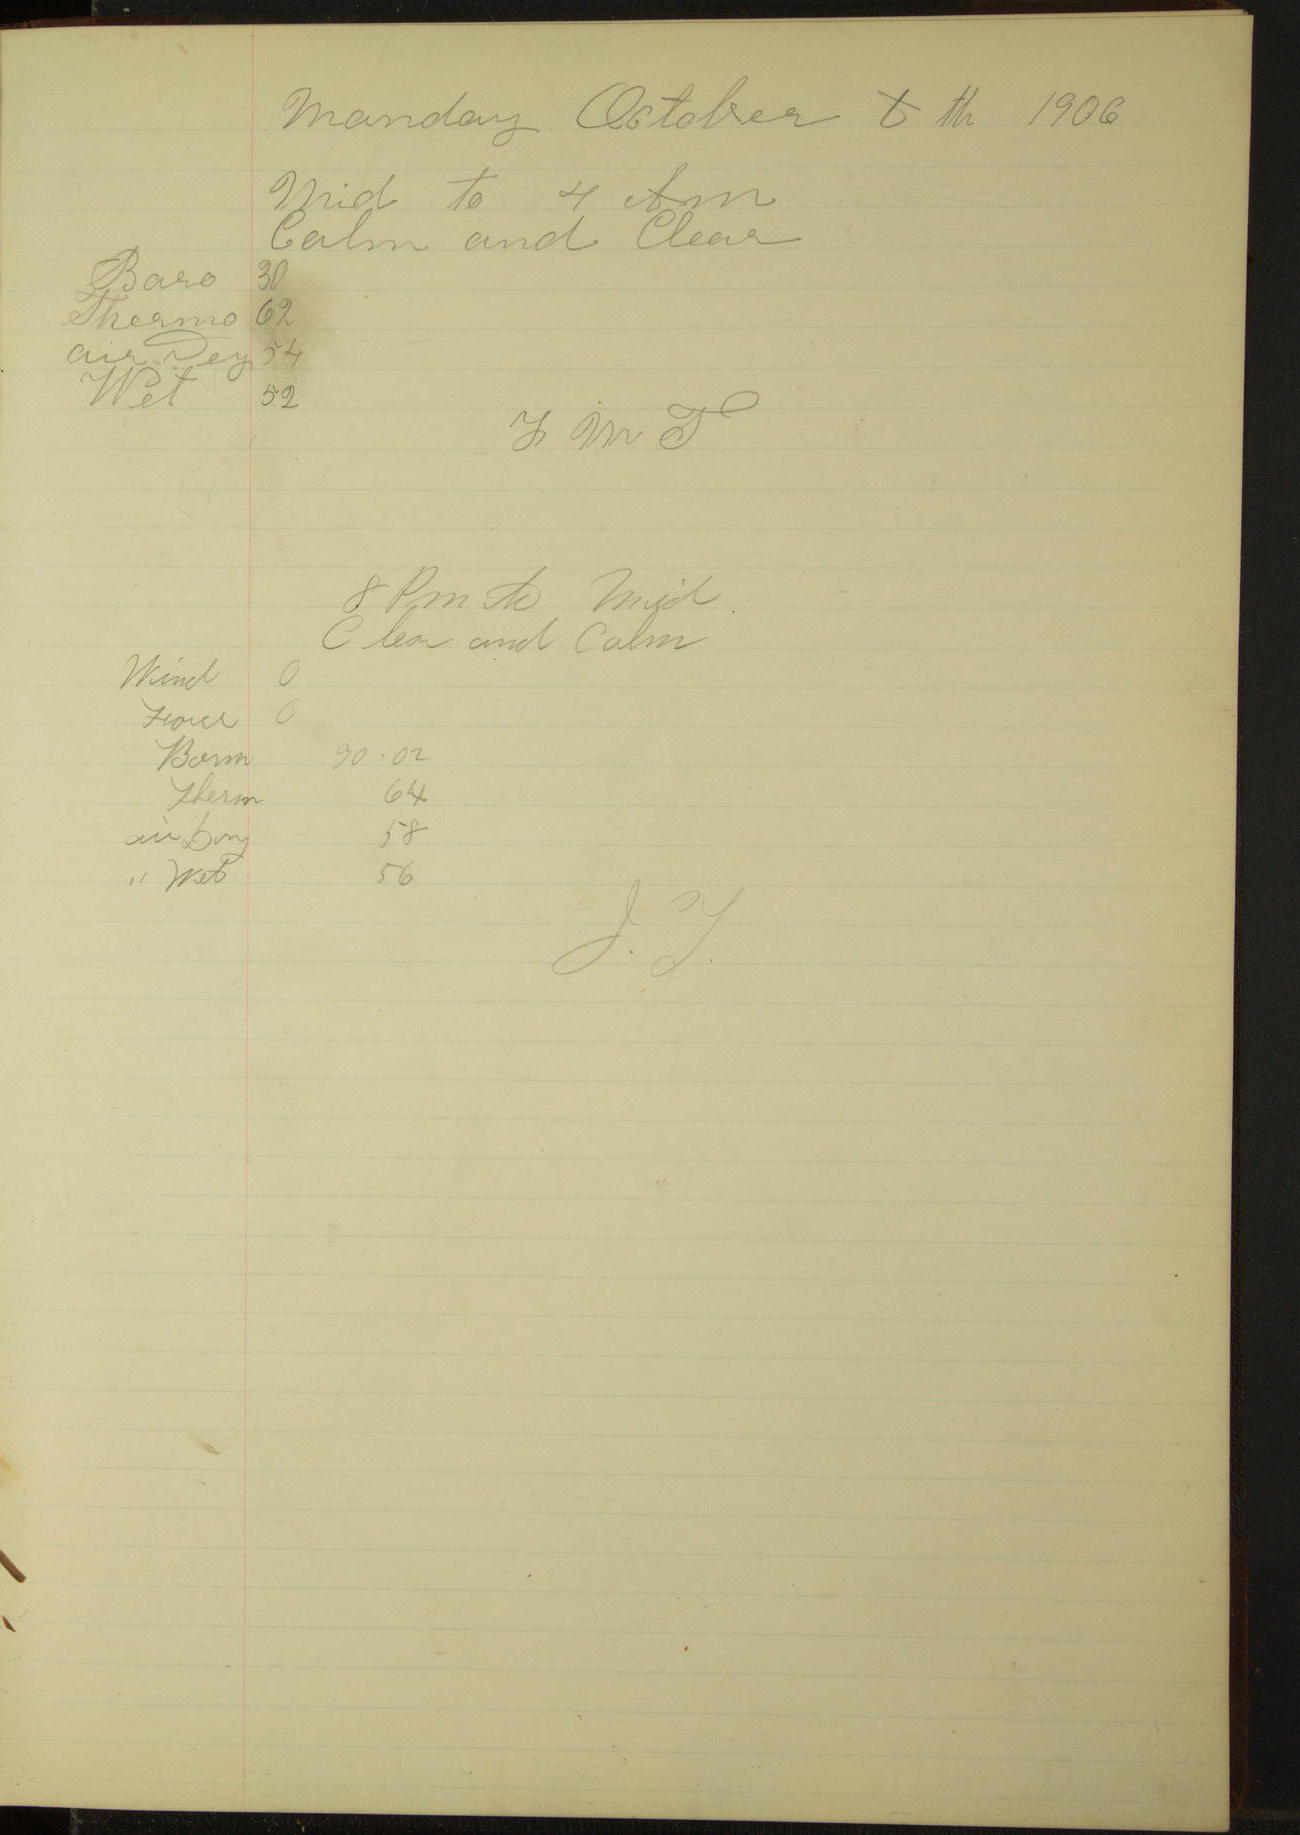 Monday October 8 th 1906
Mid to 4 Am
Calm and Clear
Baro 30
Thermo 62
air Dry 54
Wet 52
F M T
8 Pm to Mid.
Clear and Calm
Wind 0
Force 0
Barm 30.02
Therm 64
air Dry 58
" Wet 56
J. F.